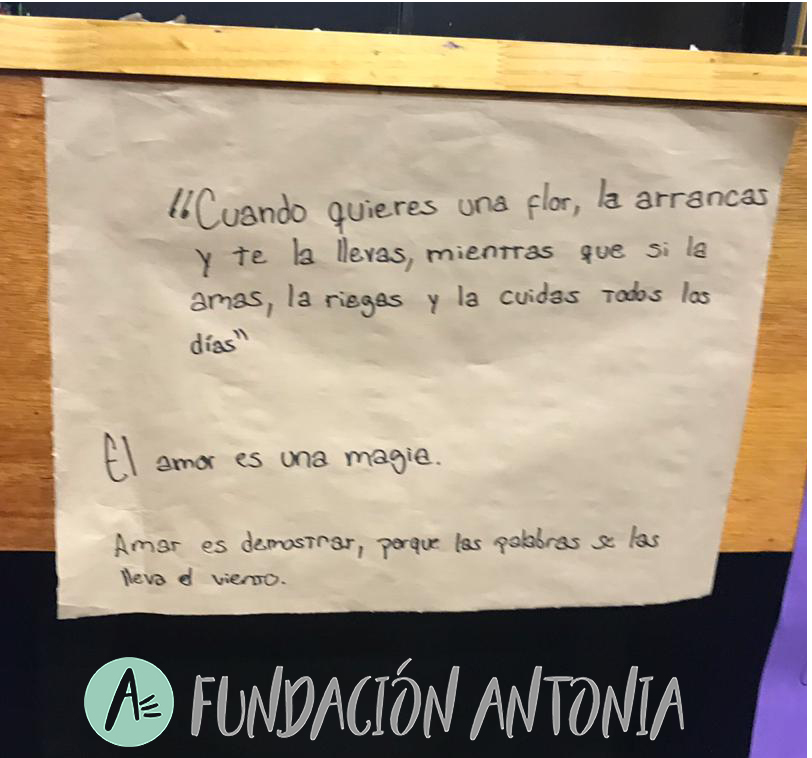 "Cuando quieres una flor, la arrancas
y te la llevas, mientras que si la
amas, la riegas y la cuidas todos los
días"
El amor es una magia.
Amar es demostrar, porque las palabras se las
lleva el viento.
A FUNDACIÓN ANTONIA